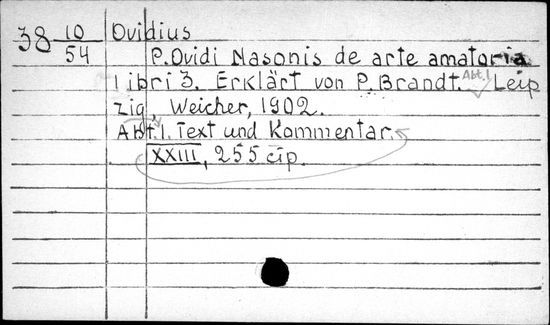 38 10/54 Ovidius
P. Ovidi Nasonis de arte amatoria
libri 3. Erklärt von P. Brandt. Abt. 1. Leip
zig, Weicher, 1902.
Abt. 1. Text und Kommentar.
XXIII, 255 стр.